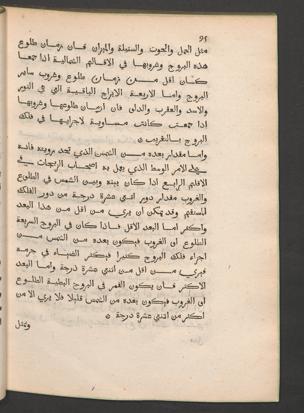 ٩٤
مثل الحمل والحوت والسنبلة والميزان فان زمان طلوع
هذه البروج وغروبها في الاقاليم الشمالية اذا جمعا
كان اقل من زمان طلوع وغروب ساير
البروج واما لاربعة الابراج الباقية التي هي الثور
والاسد والعقرب والدلو فان ازمان طلوعها وغروبها
اذا جمعت كانت مساوية لاجزايها في فلك
البروج بالتقريب
واما مقدار بعده من الشمس الذي تحد برويته فانه
في الامر الوسط الذي يعمل به اصحاب الزيجات في
الاقليم الرابع اذا كان بينه وبين الشمس في الطلوع
والغروب مقدار دور اثني عشرة درجة من دور الفلك
المستقيم وقد يمكن ان يري من اقل من هذا البعد
واكثر اما البعد الاقل فاذا كان في البروج السريعة
الطلوع او الغروب فيكون بعده من الشمس من
اجزاء فلك البروج كثيرا فيكثر الضياء في جرمه
فيري من اقل من اثني عشرة درجة واما البعد
الاكثر فان يكون القمر في البروج البطية الطلوع
او الغروب فيكون بعده من الشمس قليلا فلا يري الا من
اكثر من اثني عشرة درجة